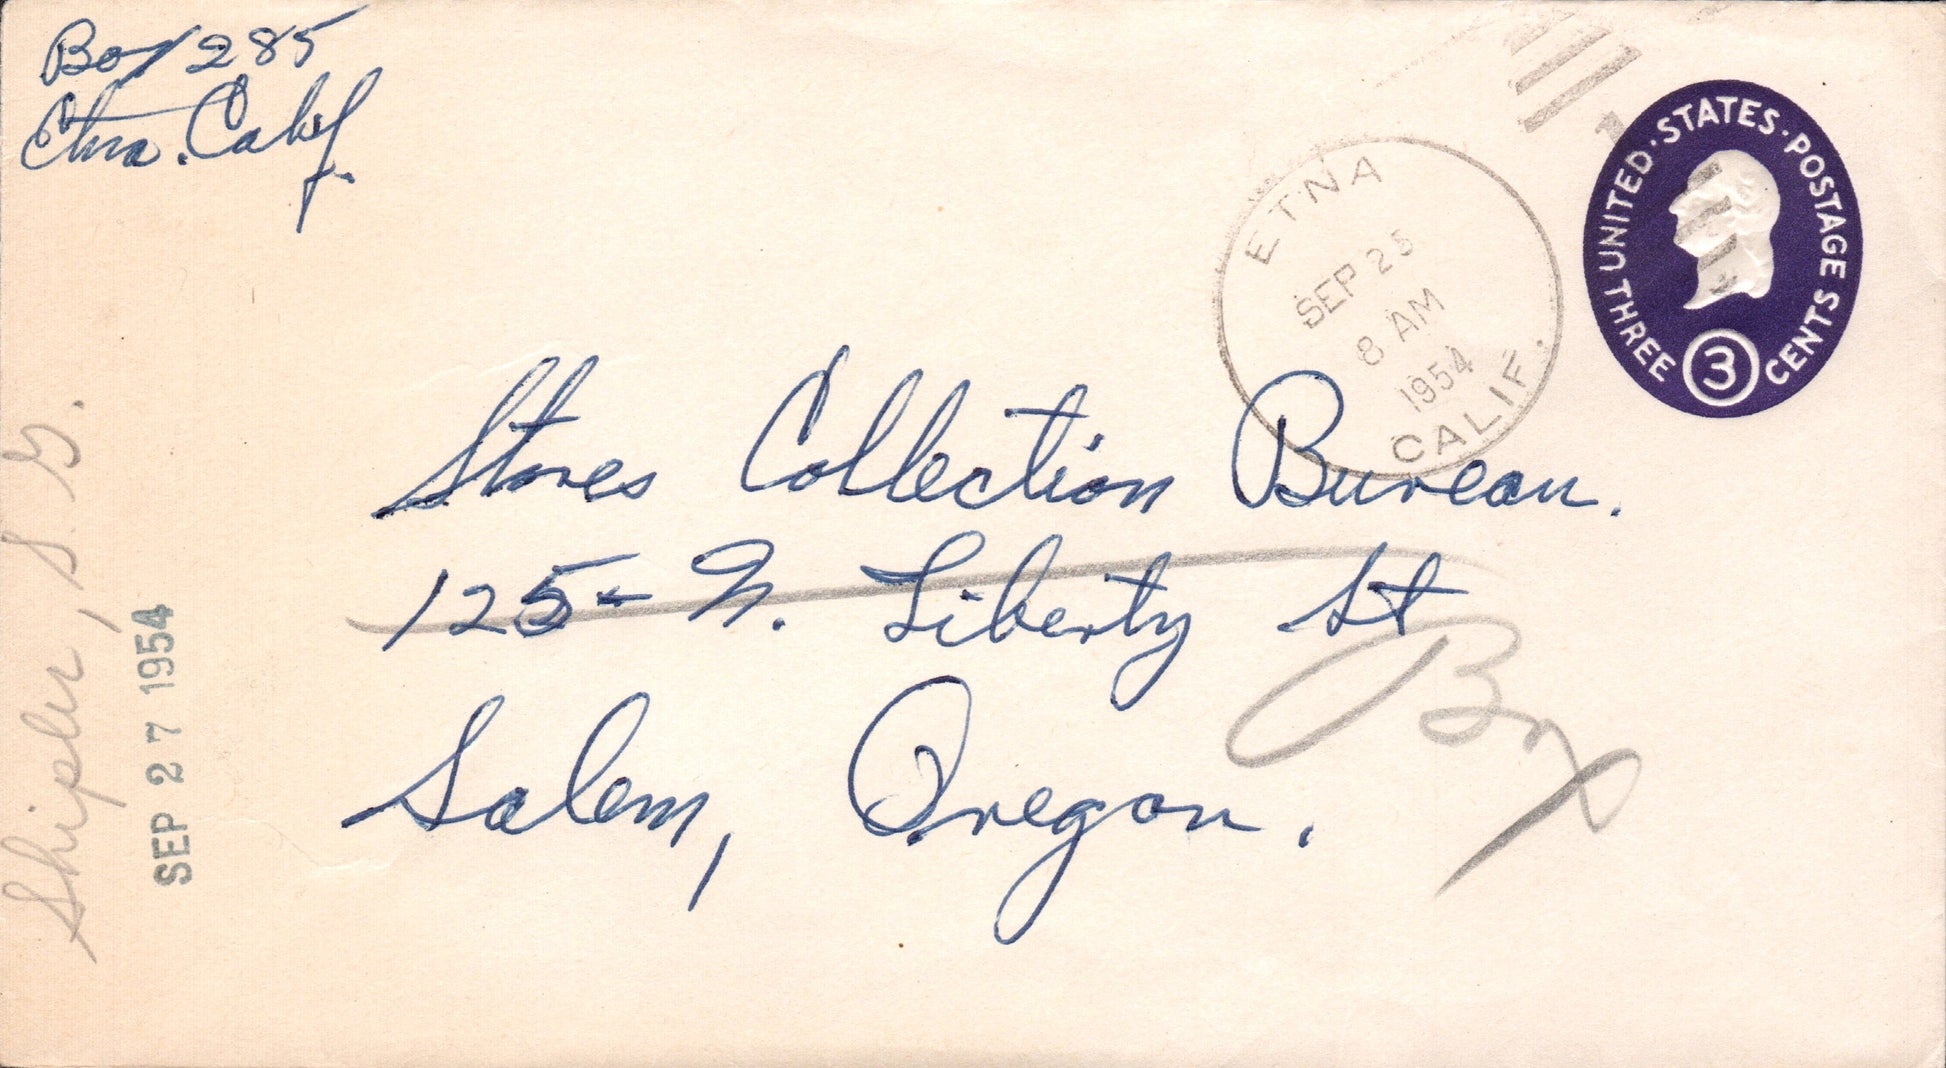 Box 285
Etna. Calif.
ETNA
SEP 25
8 AM
1954
CALIF.
UNITED · STATES · POSTAGE
THREE 3 CENTS
Stores Collection Bureau.
125 - N. Liberty St
Box
Salem, Oregon.
Shipler, S. G.
SEP 27 1954